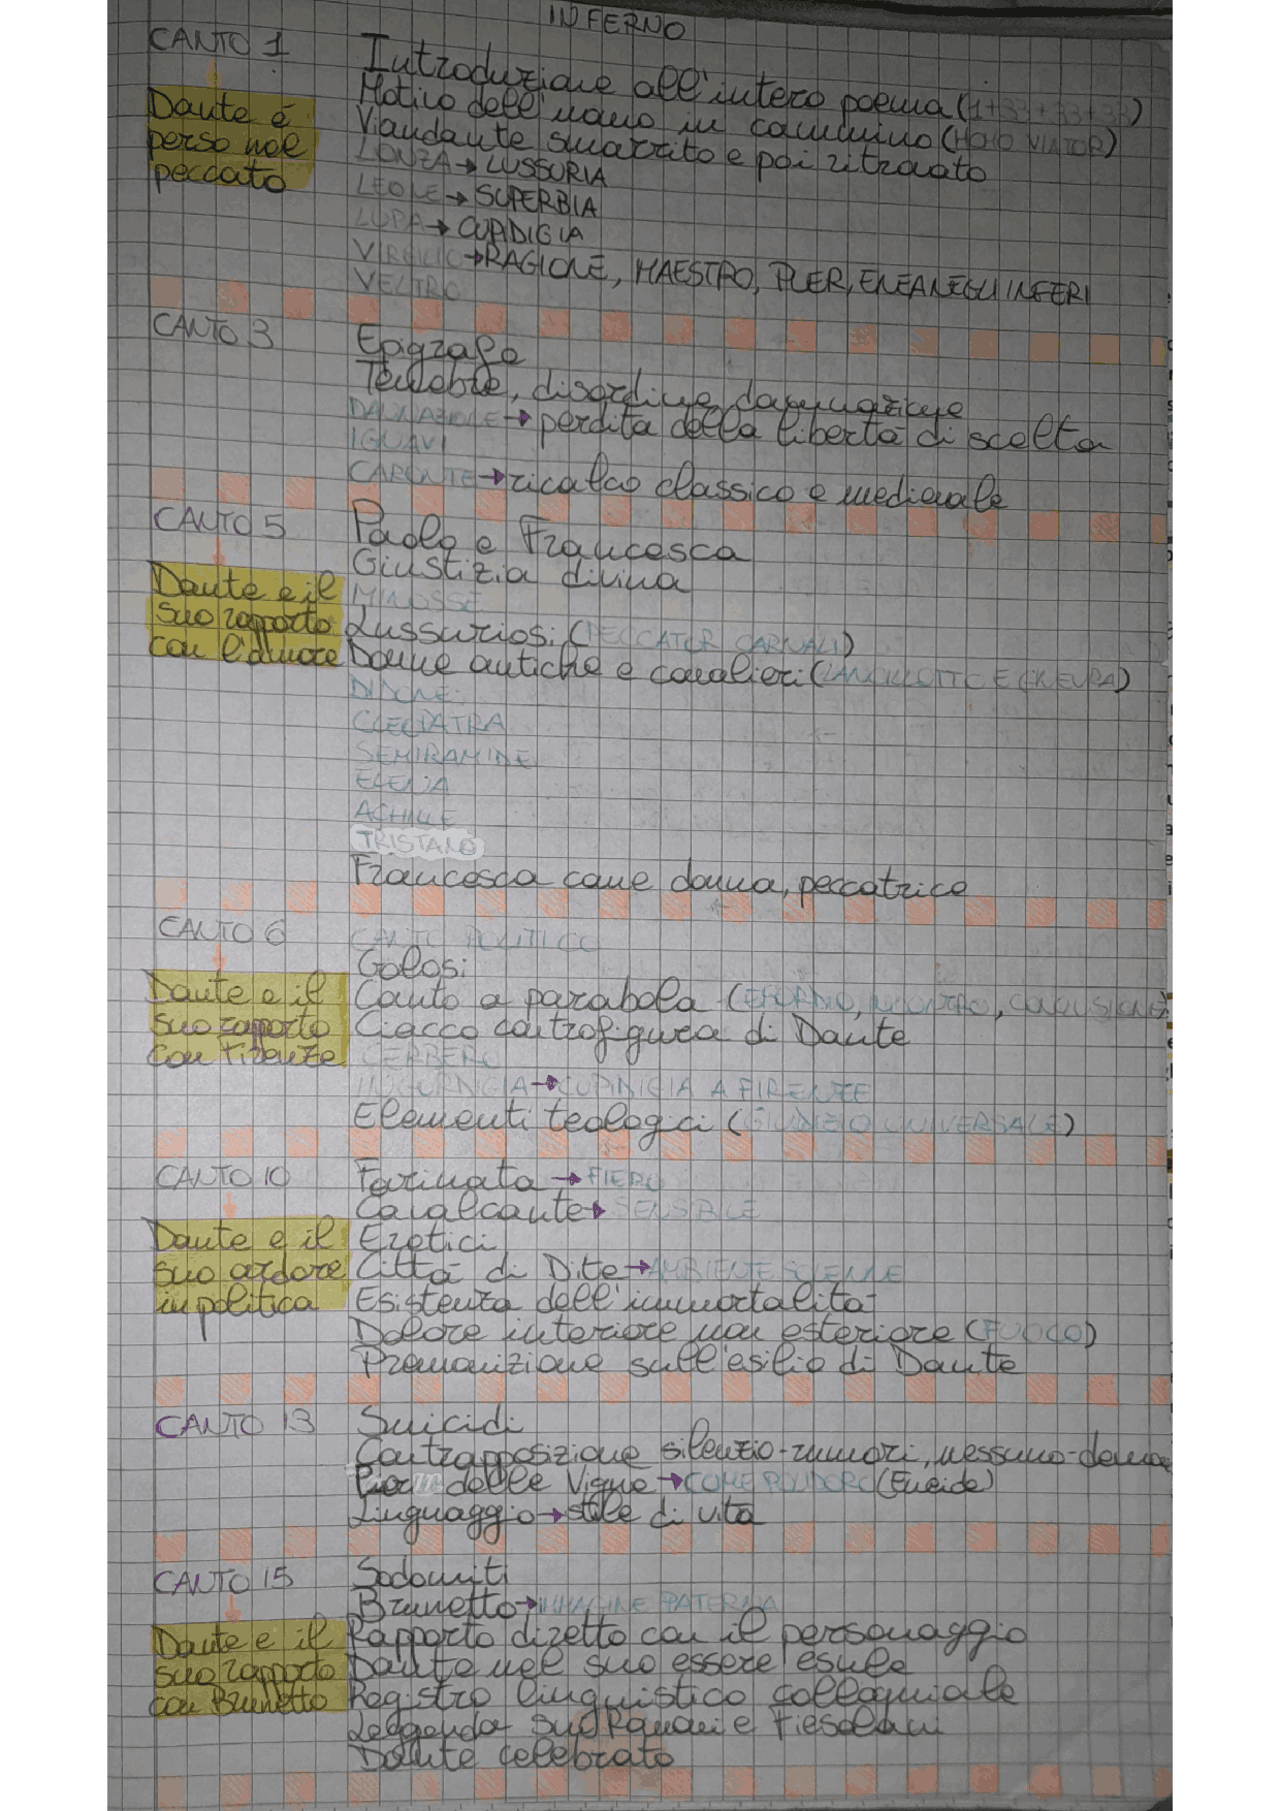 INFERNO
CANTO 1
Dante è
perso nel
peccato
Introduzione all'intero poema (1+33+33+33)
Motivo dell'uomo in cammino (HOMO VIATOR)
Viandante smarrito e poi ritrovato
LONZA → LUSSURIA
LEONE → SUPERBIA
LUPA → CUPIDIGIA
VIRGILIO → RAGIONE, MAESTRO, PUER, ENEA NEGLI INFERI
VELTRO
CANTO 3
Epigrafe
Tenebre, disordine, dannazione
DANNAZIONE → perdita della libertà di scelta
IGNAVI
CARONTE → ricalco classico e medievale
CANTO 5
Dante e il
suo rapporto
con l'amore
Paolo e Francesca
Giustizia divina
MINOSSE
Lussuriosi (PECCATOR CARNALI)
Donne antiche e cavalieri (LANCILLOTTO E GINEVRA)
DIDONE
CLEOPATRA
SEMIRAMIDE
ELENA
ACHILLE
TRISTANO
Francesca come donna, peccatrice
CANTO 6
Dante e il
suo rapporto
con Firenze
CANTO POLITICO
Golosi
Canto a parabola (ESORDIO, INCONTRO, CONCLUSIONE)
Ciacco controfigura di Dante
CERBERO
INGORDIGIA → CUPIDIGIA A FIRENZE
Elementi teologici (GIUDIZIO UNIVERSALE)
CANTO 10
Dante e il
suo ardore
in politica
Farinata → FIERO
Cavalcante → SENSIBILE
Eretici
Città di Dite → AMBIENTE SOLENNE
Esistenza dell'immortalità
Dolore interiore non esteriore (FUOCO)
Premonizione sull'esilio di Dante
CANTO 13
Suicidi
Contrapposizione silenzio-rumori, nessuno-
Pier delle Vigne → COME POLIDORO (Eneide)
Linguaggio → stile di vita
CANTO 15
Dante e il
suo rapporto
con Brunetto
Sodomiti
Brunetto → IMMAGINE PATERNA
Rapporto diretto con il personaggio
Dante nel suo essere esule
Registro linguistico colloquiale
Leggenda sui Romani e Fiesolani
Dante celebrato